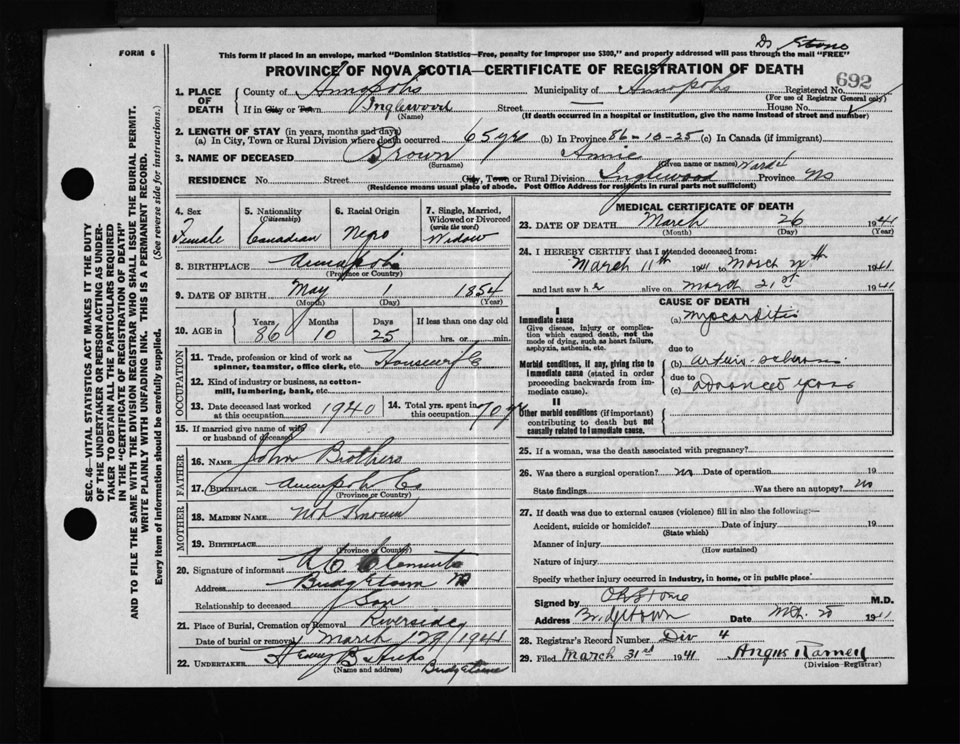 FORM 6
This form if placed in an envelope, marked "Dominion Statistics—Free, penalty for improper use $300," and properly addressed will pass through the mail "FREE"
Dr Stone
PROVINCE OF NOVA SCOTIA—CERTIFICATE OF REGISTRATION OF DEATH
692
1. PLACE OF DEATH
County of Annapolis Municipality of Annapolis Registered No.
(For use of Registrar General only)
If in City or Town Inglewood Street — House No.
(Name) (If death occurred in a hospital or institution, give the name instead of street and number)
2. LENGTH OF STAY (in years, months and days)
(a) In City, Town or Rural Division where death occurred 65 yrs (b) In Province 86-10-25 (c) In Canada (if immigrant)
3. NAME OF DECEASED Brown Annie
(Surname) (Given name or names)
RESIDENCE No. Street City, Town or Rural Division Inglewood Province NS
(Residence means usual place of abode. Post Office Address for residents in rural parts not sufficient)
SEC. 46—VITAL STATISTICS ACT MAKES IT THE DUTY
OF THE UNDERTAKER OR PERSON ACTING AS UNDER-
TAKER TO OBTAIN ALL THE PARTICULARS REQUIRED
IN THE "CERTIFICATE OF REGISTRATION OF DEATH"
AND TO FILE THE SAME WITH THE DIVISION REGISTRAR WHO SHALL ISSUE THE BURIAL PERMIT.
WRITE PLAINLY WITH UNFADING INK. THIS IS A PERMANENT RECORD.
Every item of information should be carefully supplied. (See reverse side for instructions.)
4. Sex
Female
5. Nationality
(Citizenship)
Canadian
6. Racial Origin
Negro
7. Single, Married,
Widowed or Divorced
(write the word)
Widow
8. BIRTHPLACE Annapolis
(Province or Country)
9. DATE OF BIRTH May 1 1854
(Month) (Day) (Year)
10. AGE in Years Months Days If less than one day old
86 10 25 hrs. or min.
OCCUPATION
11. Trade, profession or kind of work as
spinner, teamster, office clerk, etc. Housewife
12. Kind of industry or business, as cotton-
mill, lumbering, bank, etc.
13. Date deceased last worked
at this occupation 1940
14. Total yrs. spent in
this occupation 70 yrs
15. If married give name of wife
or husband of deceased
FATHER
16. NAME John Brothers
17. BIRTHPLACE Annapolis Co
(Province or Country)
MOTHER
18. MAIDEN NAME Not Known
19. BIRTHPLACE
(Province or Country)
20. Signature of informant Clements
Address Bridgetown NS
Relationship to deceased Son
21. Place of Burial, Cremation or Removal Riverside
Date of burial or removal March 1941
22. UNDERTAKER Henry B Hicks Bridgetown
(Name and address)
MEDICAL CERTIFICATE OF DEATH
23. DATE OF DEATH March 26 1941
(Month) (Day) (Year)
24. I HEREBY CERTIFY that I attended deceased from:
March 11th 1941 to March 1941
and last saw her alive on March 21st 1941
CAUSE OF DEATH
I
Immediate cause
Give disease, injury or complica-
tion which caused death, not the
mode of dying, such as heart failure,
asphyxia, asthenia, etc.
(a) Myocarditis
due to
Morbid conditions, if any, giving rise to
immediate cause (stated in order
proceeding backwards from im-
mediate cause).
(b)
due to
(c) Advanced years
II
Other morbid conditions (if important)
contributing to death but not
causally related to immediate cause.
25. If a woman, was the death associated with pregnancy?
26. Was there a surgical operation? no Date of operation 19
State findings Was there an autopsy? no
27. If death was due to external causes (violence) fill in also the following:—
Accident, suicide or homicide? Date of injury 19
(State which)
Manner of injury
(How sustained)
Nature of injury
Specify whether injury occurred in industry, in home, or in public place
Signed by Stone M.D.
Address Bridgetown Date 1941
28. Registrar's Record Number Div 4
29. Filed March 31st 1941 Angus
(Division Registrar)